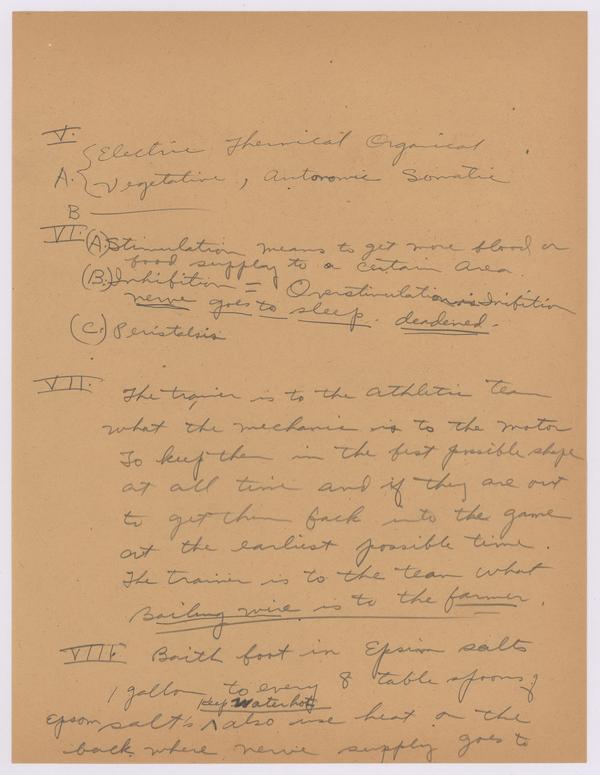 V.
Electric Thermical Organical
A. Vegetative, Autonomic Somatic
B
VI. (A) Stimulation means to get more blood or
food supplay to a certain area.
(B.) Inhibition = Overstimulation is Inibition
nerve goes to sleep. deadened.
(C.) Peristalsis
VII. The trainer is to the athletic team
what the mechanic is to the motor
To keep then in the best possible shape
at all time and if they are out
to get them back into the game
at the earliest possible time.
The trainer is to the team what
Bailing wire is to the farmer.
VIII Baith foot in Epsim salts
1 gallon to every 8 table spoons of
keep water hot
Epsom salt's ∧ also use heat on the
back where nerve supply goes to